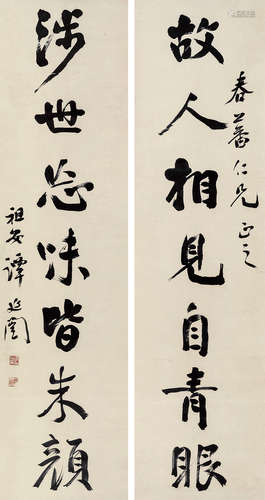 故人相見自青眼
春蕃仁兄正之
涉世忘味皆朱顏
祖安譚延闓